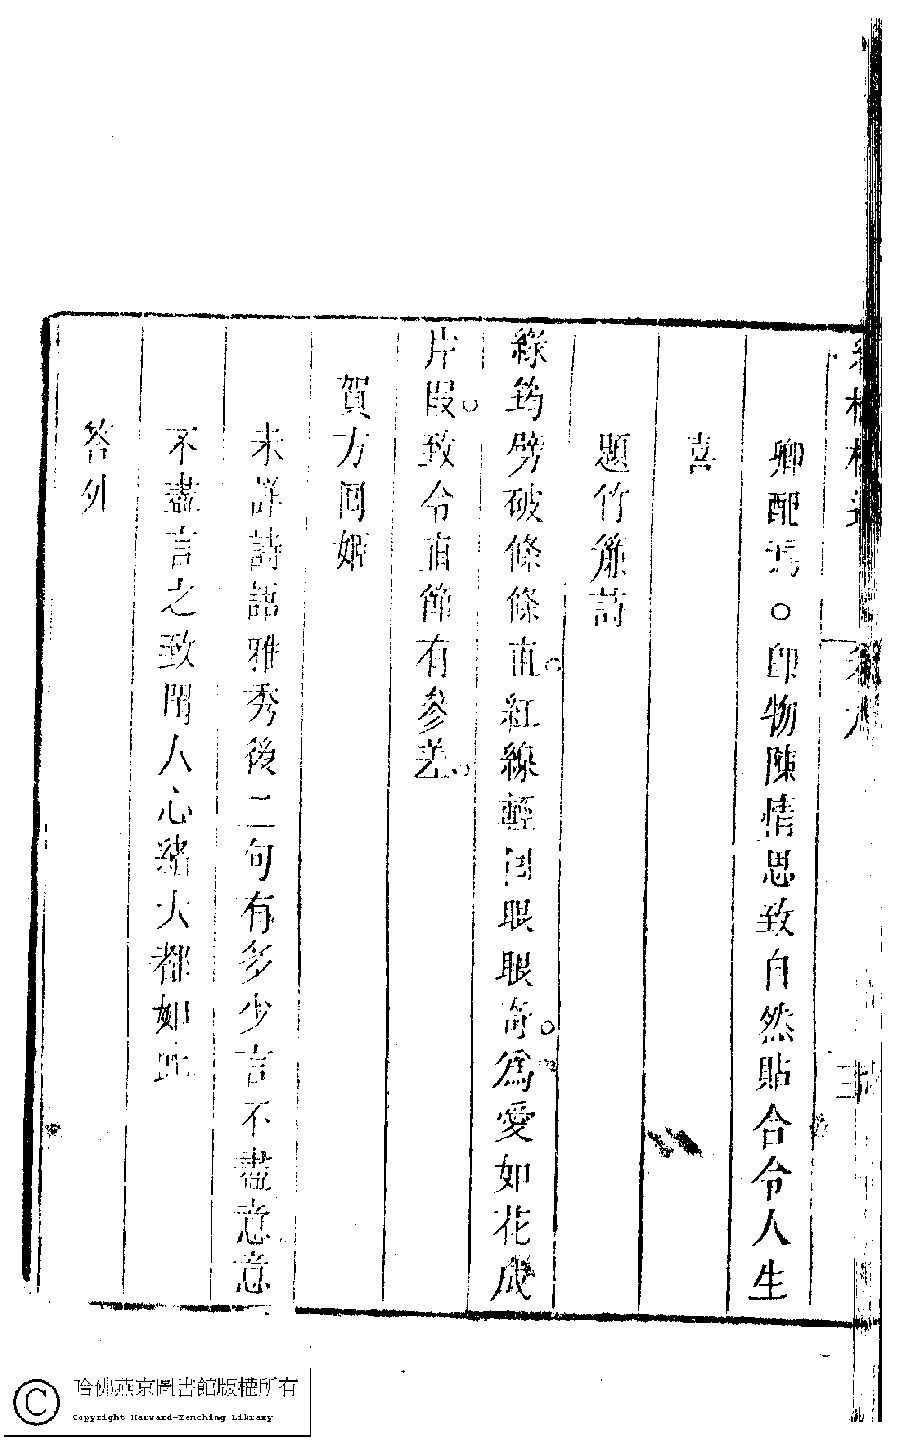 卿配焉○卽物陳情思致自然貼合令人生
喜
題竹簾詩
綠筠劈破條條直。紅線輕囘眼眼奇。為愛如花成
片段。致令直節有參差。
賀方囘姬
未詳詩語雅秀後二句有多少言不盡意意
不盡言之致閨人心緒大都如此
答外
三
哈佛燕京圖書館版權所有
Copyright Harvard-Yenching Library